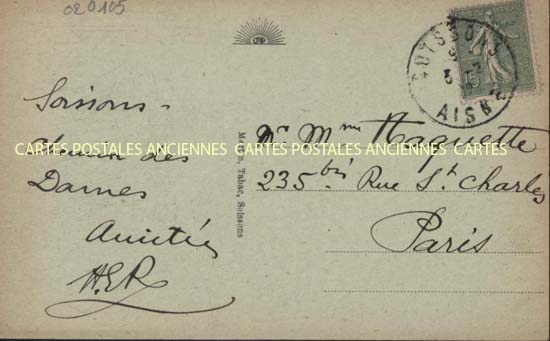 020105
SOISSONS
AISNE
15
Soissons =
Chemin des
Dames
Amitiés
H.E.R.
CARTES POSTALES ANCIENNES CARTES POSTALES ANCIENNES CARTES
Tabac, Soissons
Mr Mme Haquette
235 bis Rue St. Charles
Paris